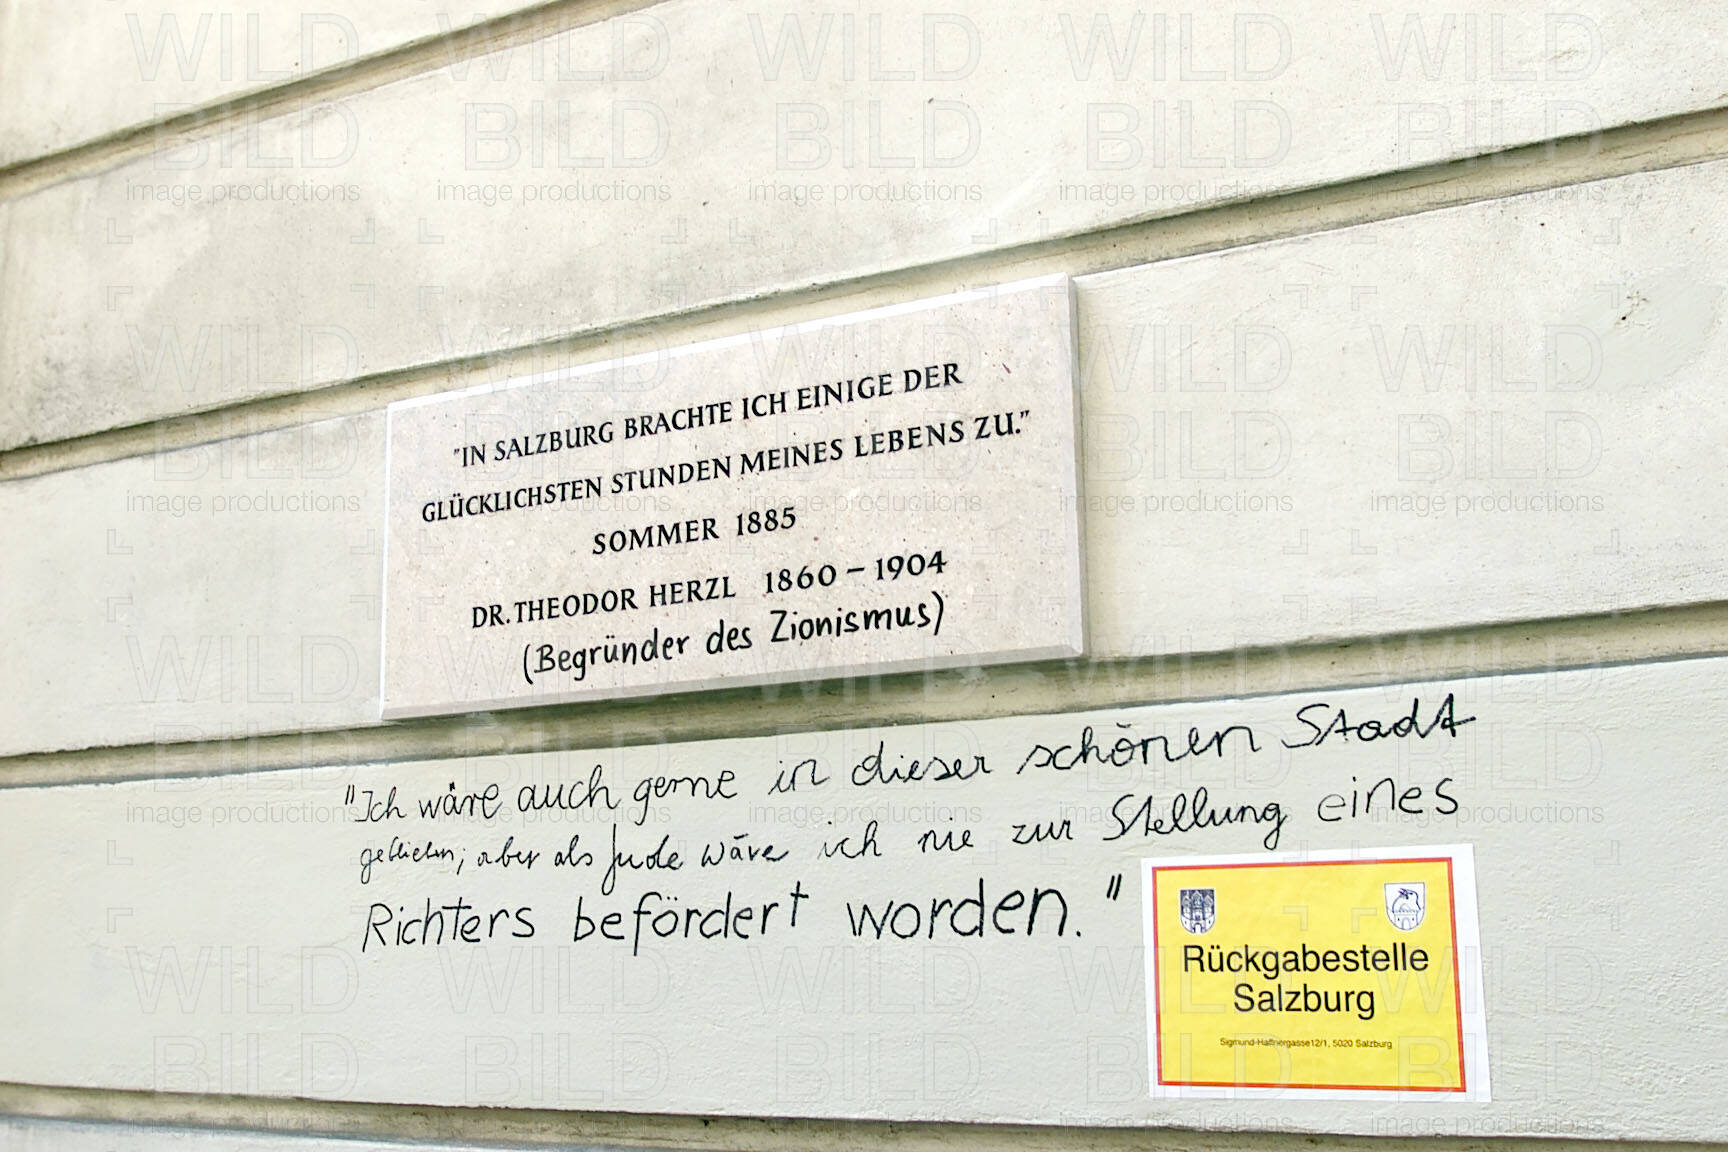 "IN SALZBURG BRACHTE ICH EINIGE DER
GLÜCKLICHSTEN STUNDEN MEINES LEBENS ZU."
SOMMER 1885
DR. THEODOR HERZL 1860 – 1904
(Begründer des Zionismus)
"Ich wäre auch gerne in dieser schönen Stadt
geblieben; aber als Jude wäre ich nie zur Stellung eines
Richters befördert worden."
Rückgabestelle
Salzburg
Sigmund-Haffnergasse12/1, 5020 Salzburg
WILD
BILD
image productions